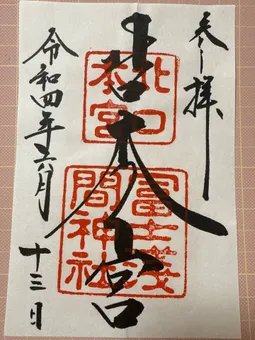 奉拝
北口本宮
北口
本宮
冨士淺
間神社
令和四年六月
十三日